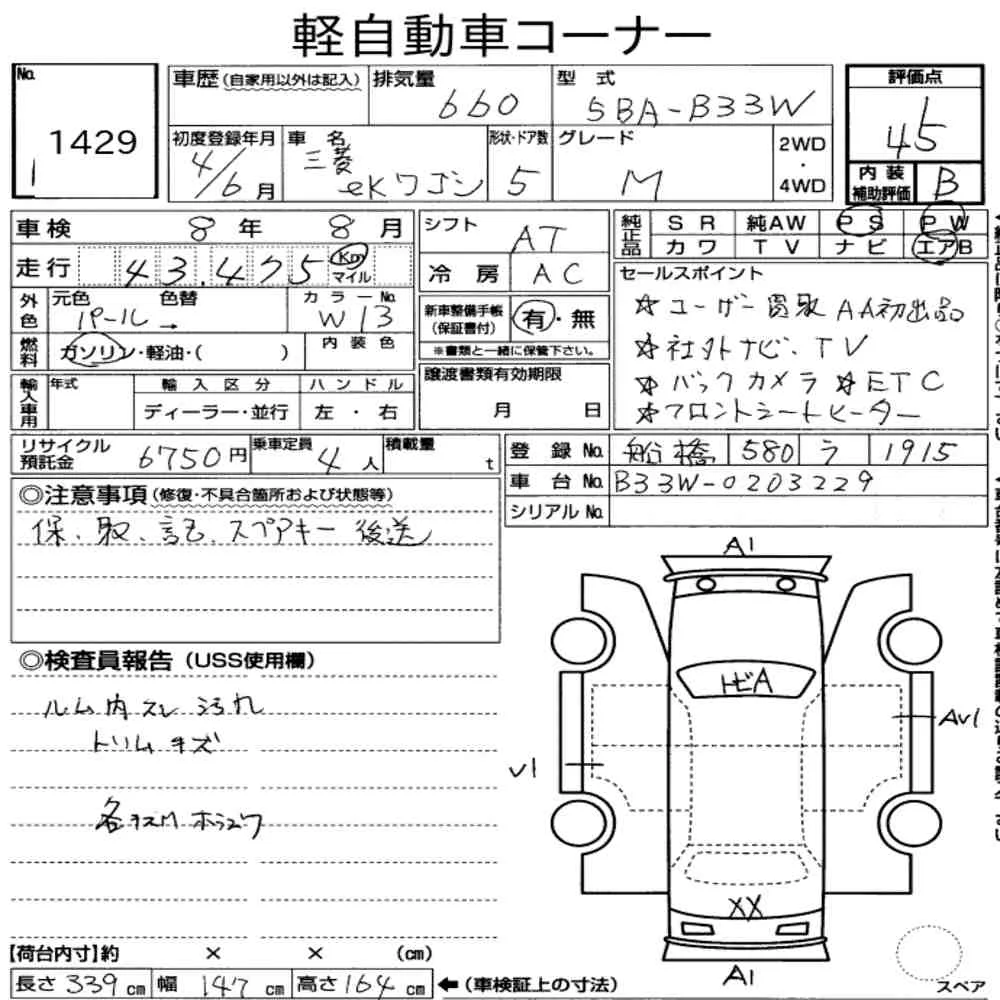 軽自動車コーナー
No.
1429
車歴(自家用以外は記入) 排気量 660 型式 5BA-B33W
評価点 45
初度登録年月 4/6月 車名 三菱 eKワゴン 形状・ドア数 5 グレード M 2WD・4WD
内装補助評価 B
車検 8年 8月
走行 43.475 Km マイル
外色 元色 パール→ 色替 カラーNo. W13
燃料 ガソリン・軽油・( ) 内装色
輸入車用 年式 輸入区分 ハンドル
ディーラー・並行 左・右
シフト AT
冷房 AC
新車整備手帳(保証書付) 有・無
※書類と一緒に保管下さい。
譲渡書類有効期限
月 日
純正品 SR 純AW PS PW
カワ TV ナビ エアB
セールスポイント
☆ユーザー買取 AA初出品
☆社外ナビ、TV
☆バックカメラ ☆ETC
☆フロントシートヒーター
リサイクル預託金 6750円 乗車定員 4人 積載量 t
登録No. 船橋 580 ラ 1915
車台No. B33W-0203229
シリアルNo.
◎注意事項(修復・不具合箇所および状態等)
保、取、記、スペアキー 後送
◎検査員報告(USS使用欄)
ルーム内 スレ 汚れ
トリム キズ
A1
トビA
AV1
V1
XX
A1
スペア
【荷台内寸】約 × × (cm)
長さ 339 cm 幅 147 cm 高さ 164 cm ←(車検証上の寸法)